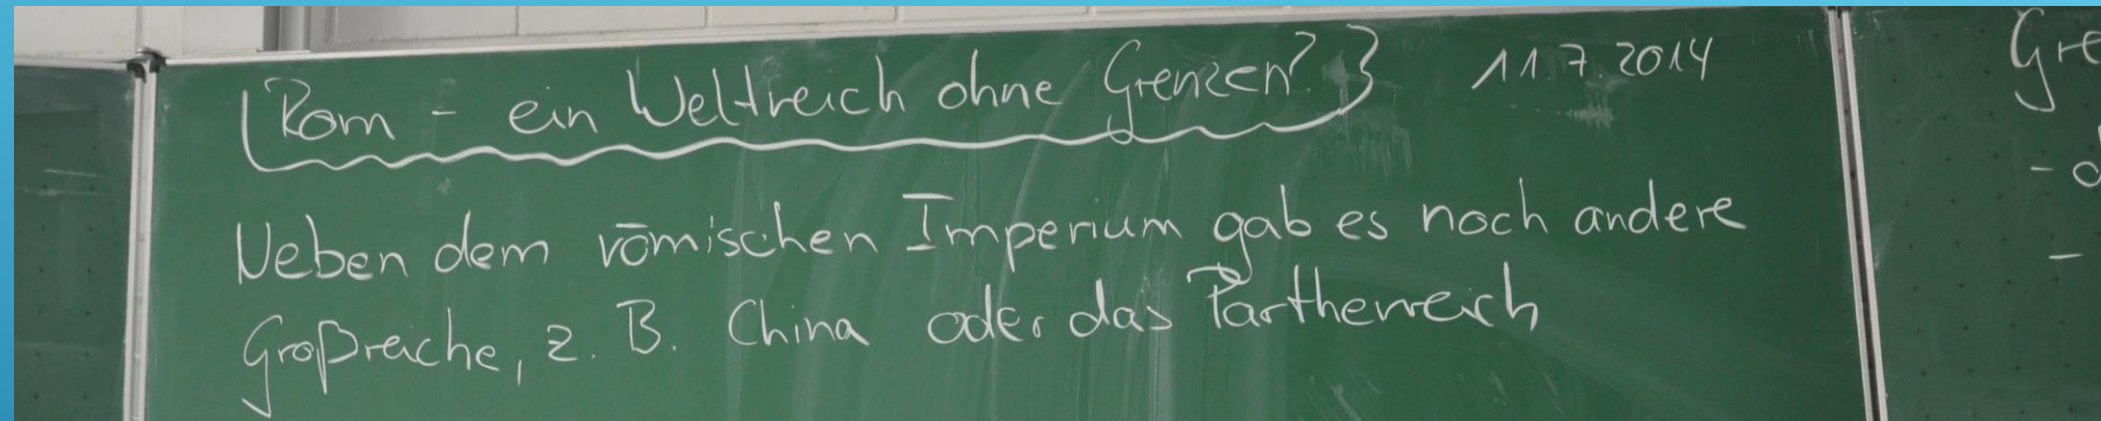 Rom - ein Weltreich ohne Grenzen? 11.7.2014
Neben dem römischen Imperium gab es noch andere
Großreiche, z. B. China oder das Partherreich
Gre
- d
-